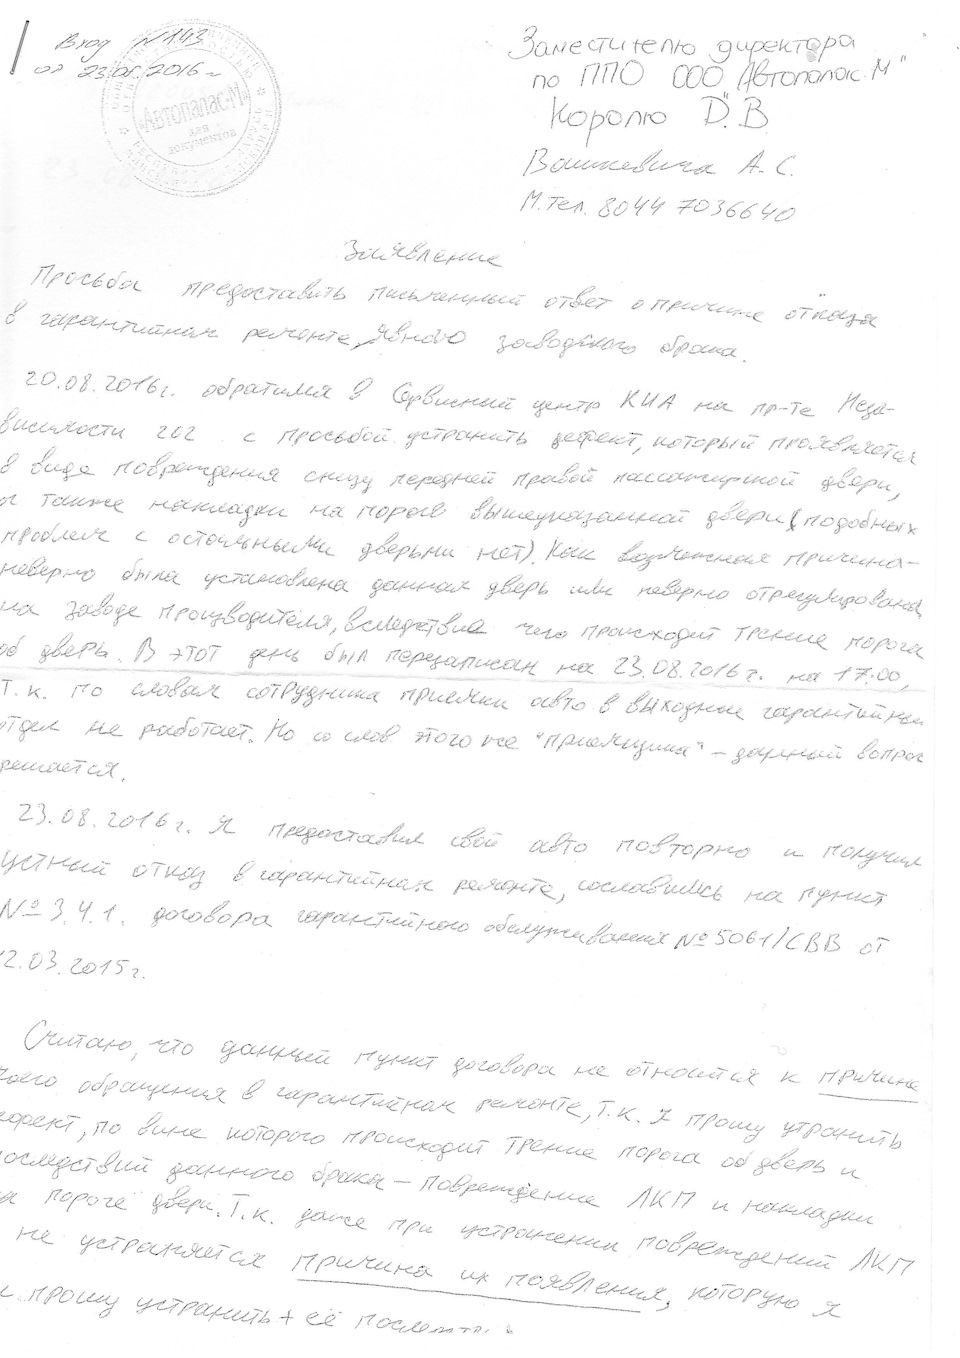 Вход №143
от 23.08.2016г
«Автопалас-М»
для
документов
Заместителю директора
по ППО ООО "Автопалас М"
Королю Д.В
Вашкевича А.С.
М.тел. 8044 7036640
Заявление
Просьба предоставить письменный ответ о причине отказа
в гарантийном ремонте, явного заводского брака.
20.08.2016г. обратился в Сервисный центр КИА на пр-те Неза-
висимости 202 с просьбой устранить дефект, который проявляется
в виде повреждения снизу передней правой пассажирской двери,
а также накладки на пороге вышеуказанной двери (подобных
проблем с остальными дверьми нет). Как возможная причина-
неверно была установлена данная дверь или неверно отрегулирована
на заводе производителя, вследствие чего происходит трение порога
об дверь. В этот день был перезаписан на 23.08.2016г. на 17:00,
т.к. по словам сотрудника приемки авто в выходные гарантийный
отдел не работает. Но со слов этого же "приемщика" - данный вопрос
решается.
23.08.2016г. я предоставил свой авто повторно и получил
устный отказ в гарантийном ремонте, сославшись на пункт
№3.4.1. договора гарантийного обслуживания №5061/СВВ от
12.03.2015г.
Считаю, что данный пункт договора не относится к причине
моего обращения в гарантийном ремонте, т.к. я прошу утранить
дефект, по вине которого происходит трение порога об дверь и
последствий данного брака - повреждение ЛКП и накладки
на пороге двери. Т.к. даже при устранении повреждений ЛКП
не устраняется причина их появления, которую я
и прошу устранить + её